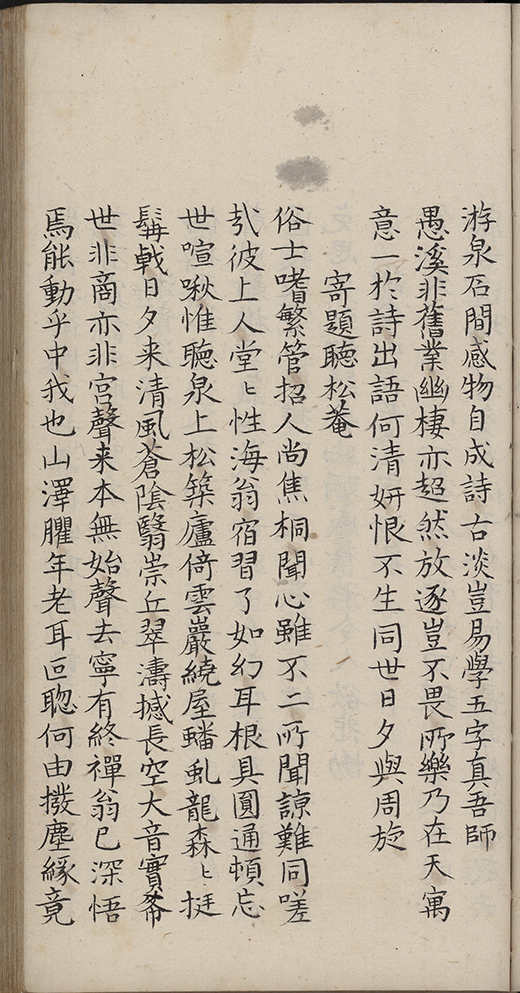 游泉石間感物自成詩古淡豈易學五字真吾師
愚溪非舊業幽棲亦超然放逐豈不畏所樂乃在天寓
意一於詩出語何清妍恨不生同世日夕與周旋
寄題聽松菴
俗士嗜繁管招人尚焦桐聞心雖不二所聞諒難同嗟
哉彼上人堂〻性海翁宿習了如幻耳根具圓通頓忘
世喧啾惟聽泉上松築廬倚雲巖繞屋蟠虬龍森〻挺
髯戟日夕来清風蒼陰翳崇丘翠濤撼長空大音實希
世非商亦非宮聲来本無始聲去寧有終禪翁已深悟
焉能動乎中我也山澤臞年老耳叵聦何由撥塵緣竟